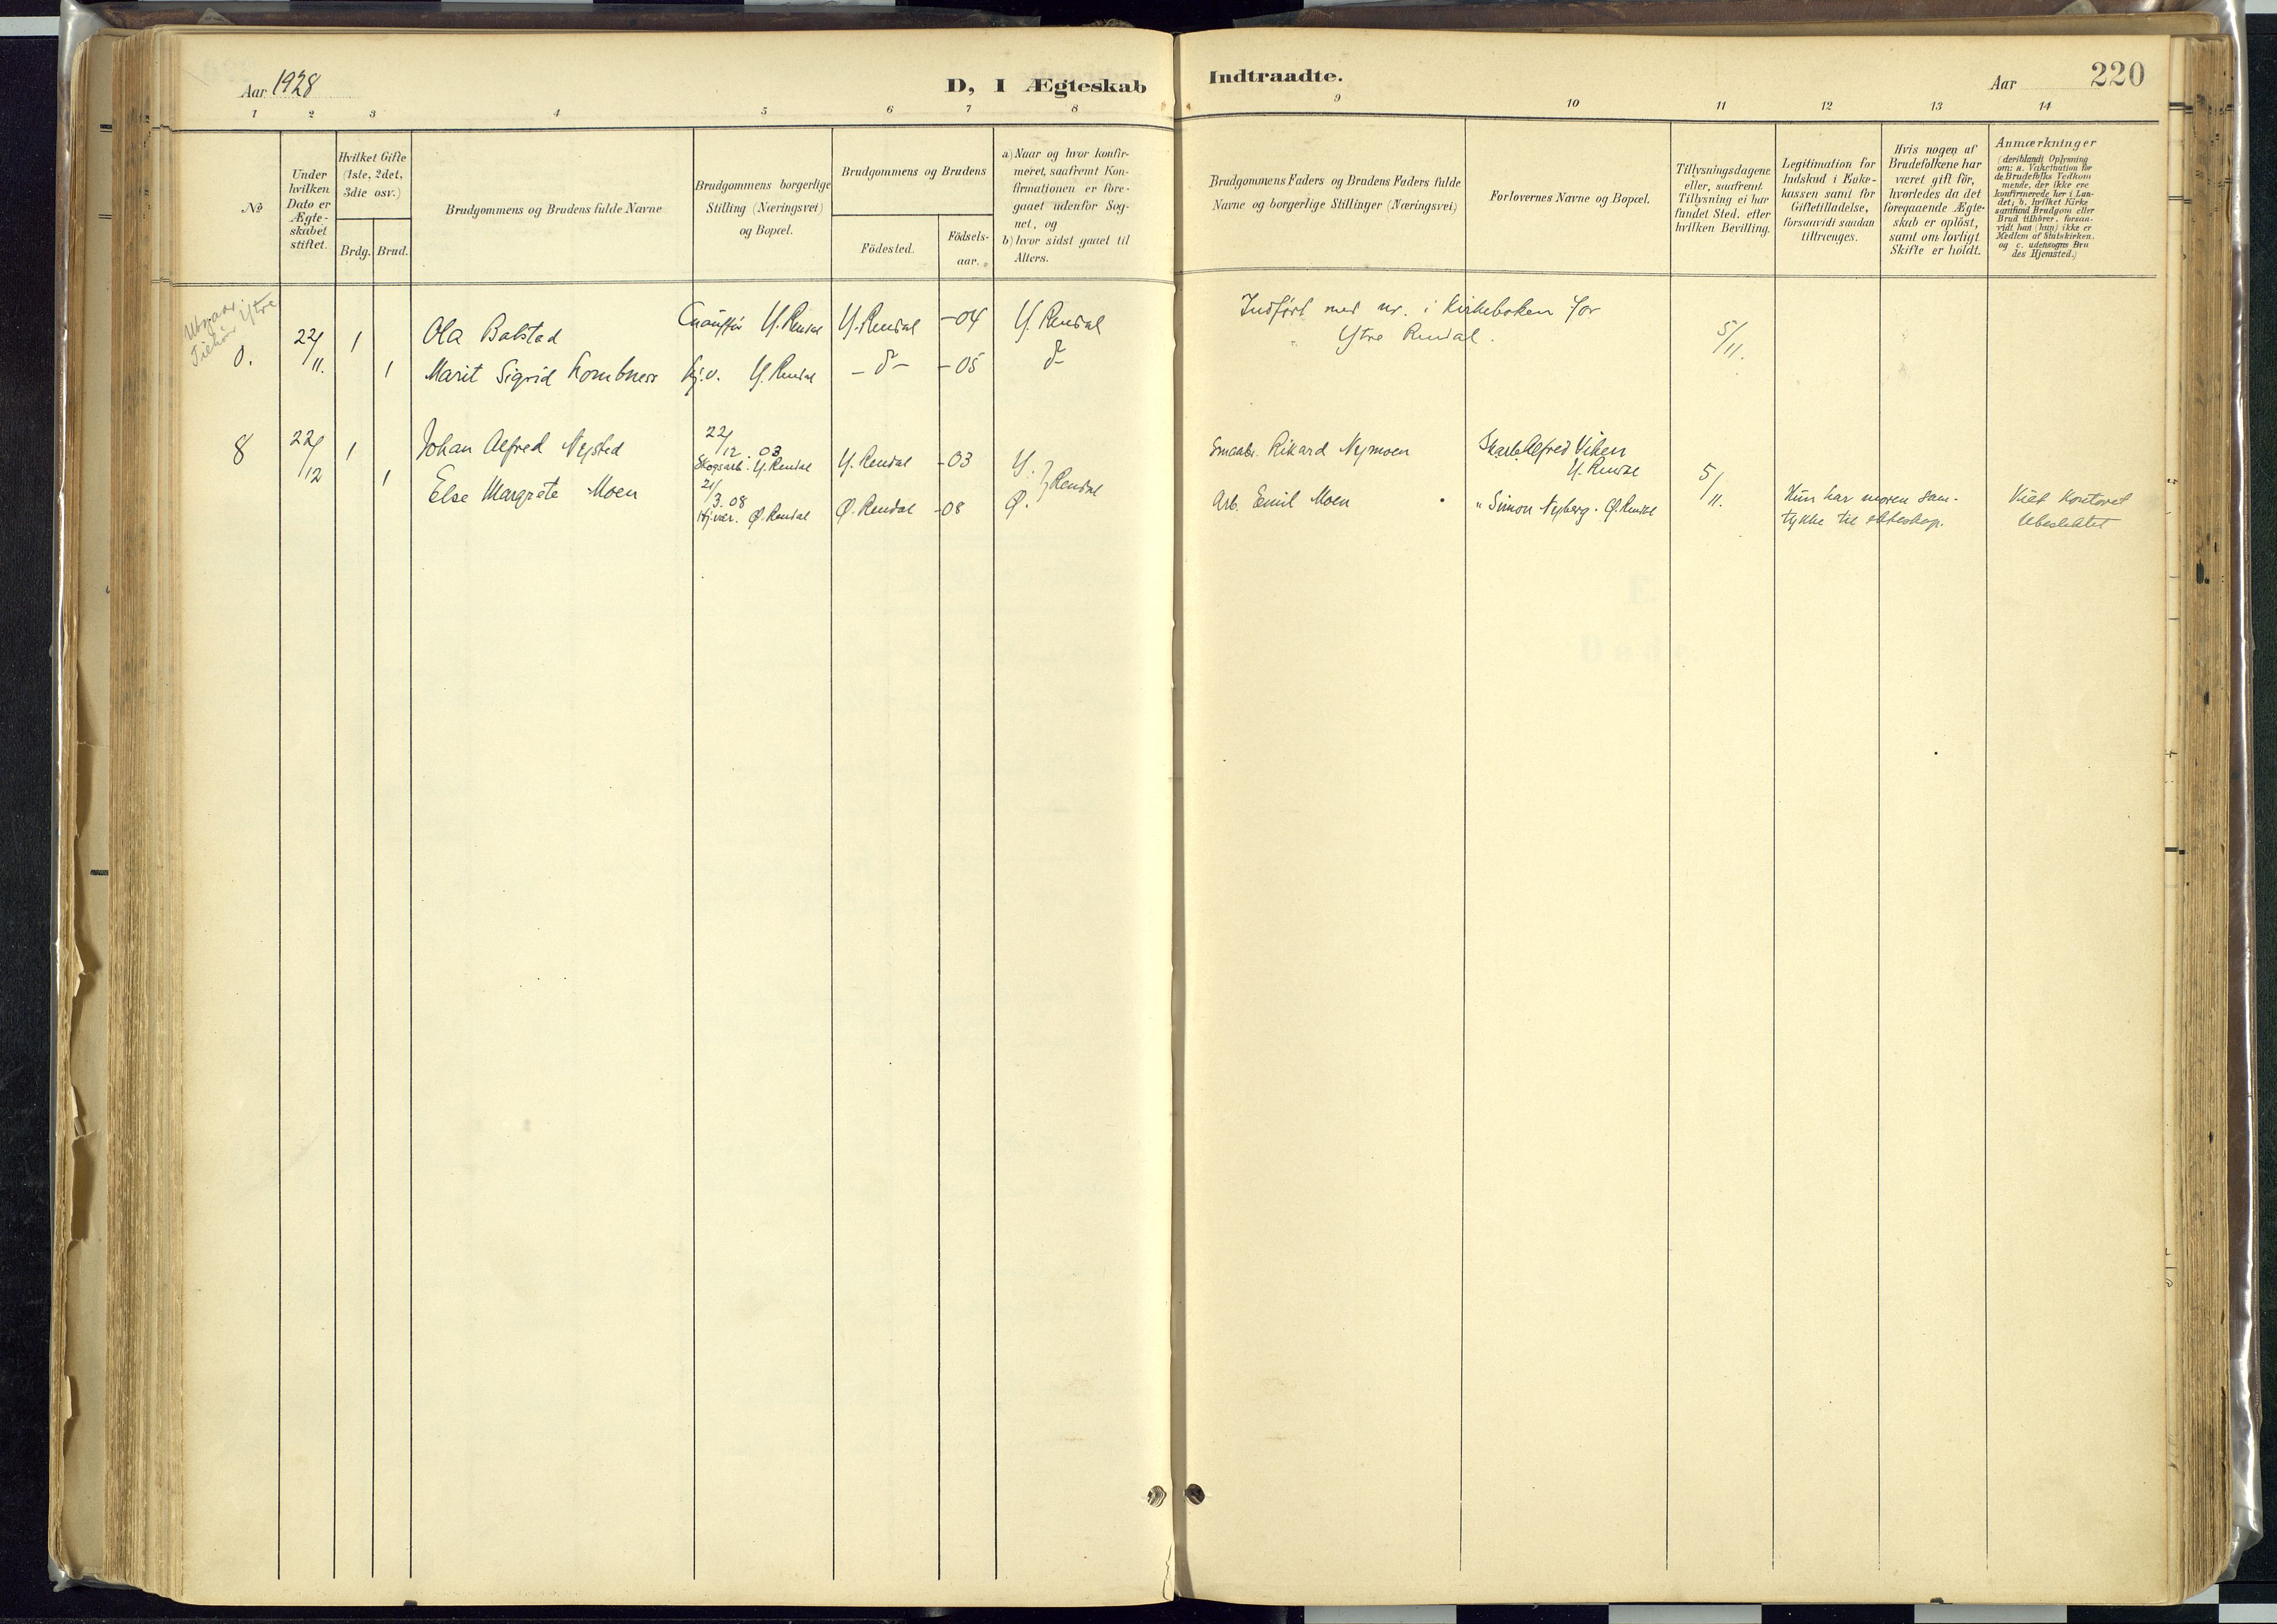 Aar 1928
D, I Ægteskab
Indtraadte.
Aar
220
1 2 3 4 5 6 7 8 9 10 11 12 13 14
No
Under hvilken Dato er Ægte-skabet stiftet.
Hvilket Gifte (1ste, 2det, 3die osv.)
Brdg. Brud.
Brudgommens og Brudens fulde Navne
Brudgommens borgerlige Stilling (Næringsvei) og Bopæl.
Brudgommens og Brudens
Födested.
Födsels-aar.
a) Naar og hvor konfir-meret, saafremt Kon-firmationen er fore-gaaet udenfor Sog-net, og
b) hvor sidst gaaet til Alters.
Brudgommens Faders og Brudens Faders fulde Navne og borgerlige Stillinger (Næringsvei)
Forlovernes Navne og Bopæl.
Tillysningsdagene eller, saafremt Tillysning ei har fundet Sted, efter hvilken Bevilling.
Legitimation for Indskud i Enke-kassen samt for Giftetilladelse, forsaavidt saadan tiltrænges.
Hvis nogen af Brudefolkene har været gift för, hvorledes da det foregaaende Ægte-skab er oplöst, samt om lovligt Skifte er holdt.
Anmærkninger
(deriblandt Oplysning om: a. Vakcination for de Brudefolks Vedkom mende, der ikke ere konfirmerede her i Lan-det; b. hvilket Kirke samfund Brudgom eller Brud tilhörer, forsaa-vidt han (hun) ikke er Medlem af Statskirken. og c. udensogns Bru des Hjemsted.)
Utgaar. Ytre
0. 22/11. 1 Ola Balstad Chauffør Y. Rendal Y. Rendal -04 Y. Rendal
Indført med nr. i Kirkeboken for
Ytre Rendal.
5/11.
1 Marit Sigrid Hj.v. Y. Rendal - d° - -05 d°
8 22/12 1 Johan Alfred Nysted 22/12 03 Skogsarb. Y. Rendal Y. Rendal -03 Y. } Rendal Smaabr. Rikard Nymoen Skarb. Alfred Viken
Y. Rendal
1 Else Margrete Moen 21/3.08 Hj.vær. Ø. Rendal Ø. Rendal -08 Ø. Arb. Emil Moen " Simon Nyberg. Ø. Rendal 5/11. Hun har moren sam-
tykke til ekteskap.
Viet Kontoret
Ubeslektet